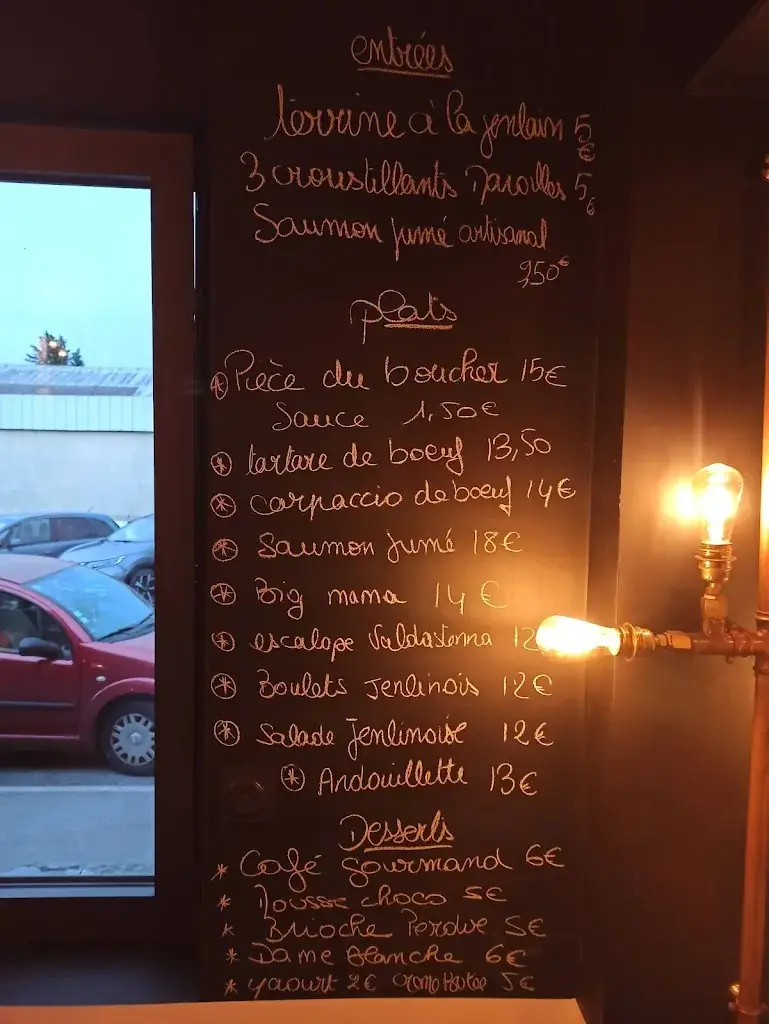 entrées
terrine à la jenlain 5€
3 croustillants Maroilles 5€
Saumon fumé artisanal
950€
plats
Pièce du boucher 15€
Sauce 1,50€
tartare de boeuf 13,50
carpaccio de boeuf 14€
Saumon fumé 18€
Big mama 14€
escalope Valdostenna 12
Boulets Jenlinois 12€
Salade Jenlinoise 12€
Andouillette 13€
Desserts
* Café gourmand 6€
* Mousse choco 5€
* Brioche Perdue 5€
* Dame Blanche 6€
* yaourt 2€ 5€